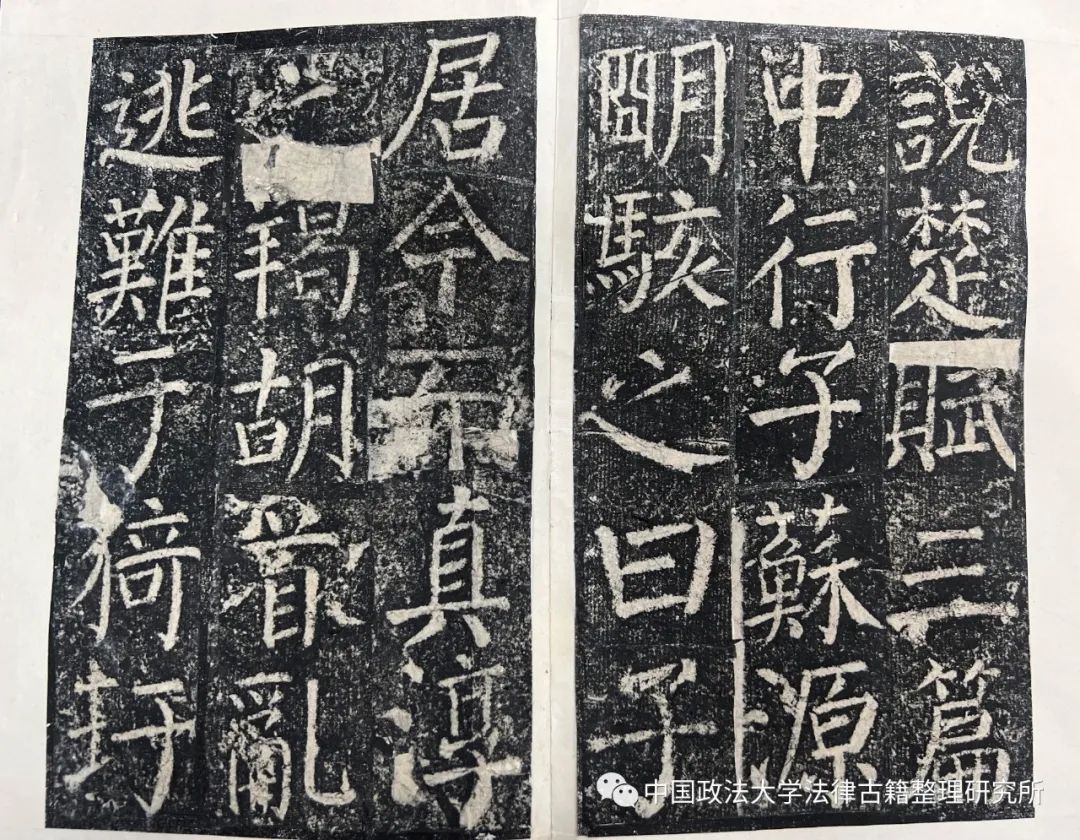 說楚賦三篇
中行子蘇源
朙駭之曰子
居今而真淳
之羯胡亂
逃難于猗玗
中国政法大学法律古籍整理研究所